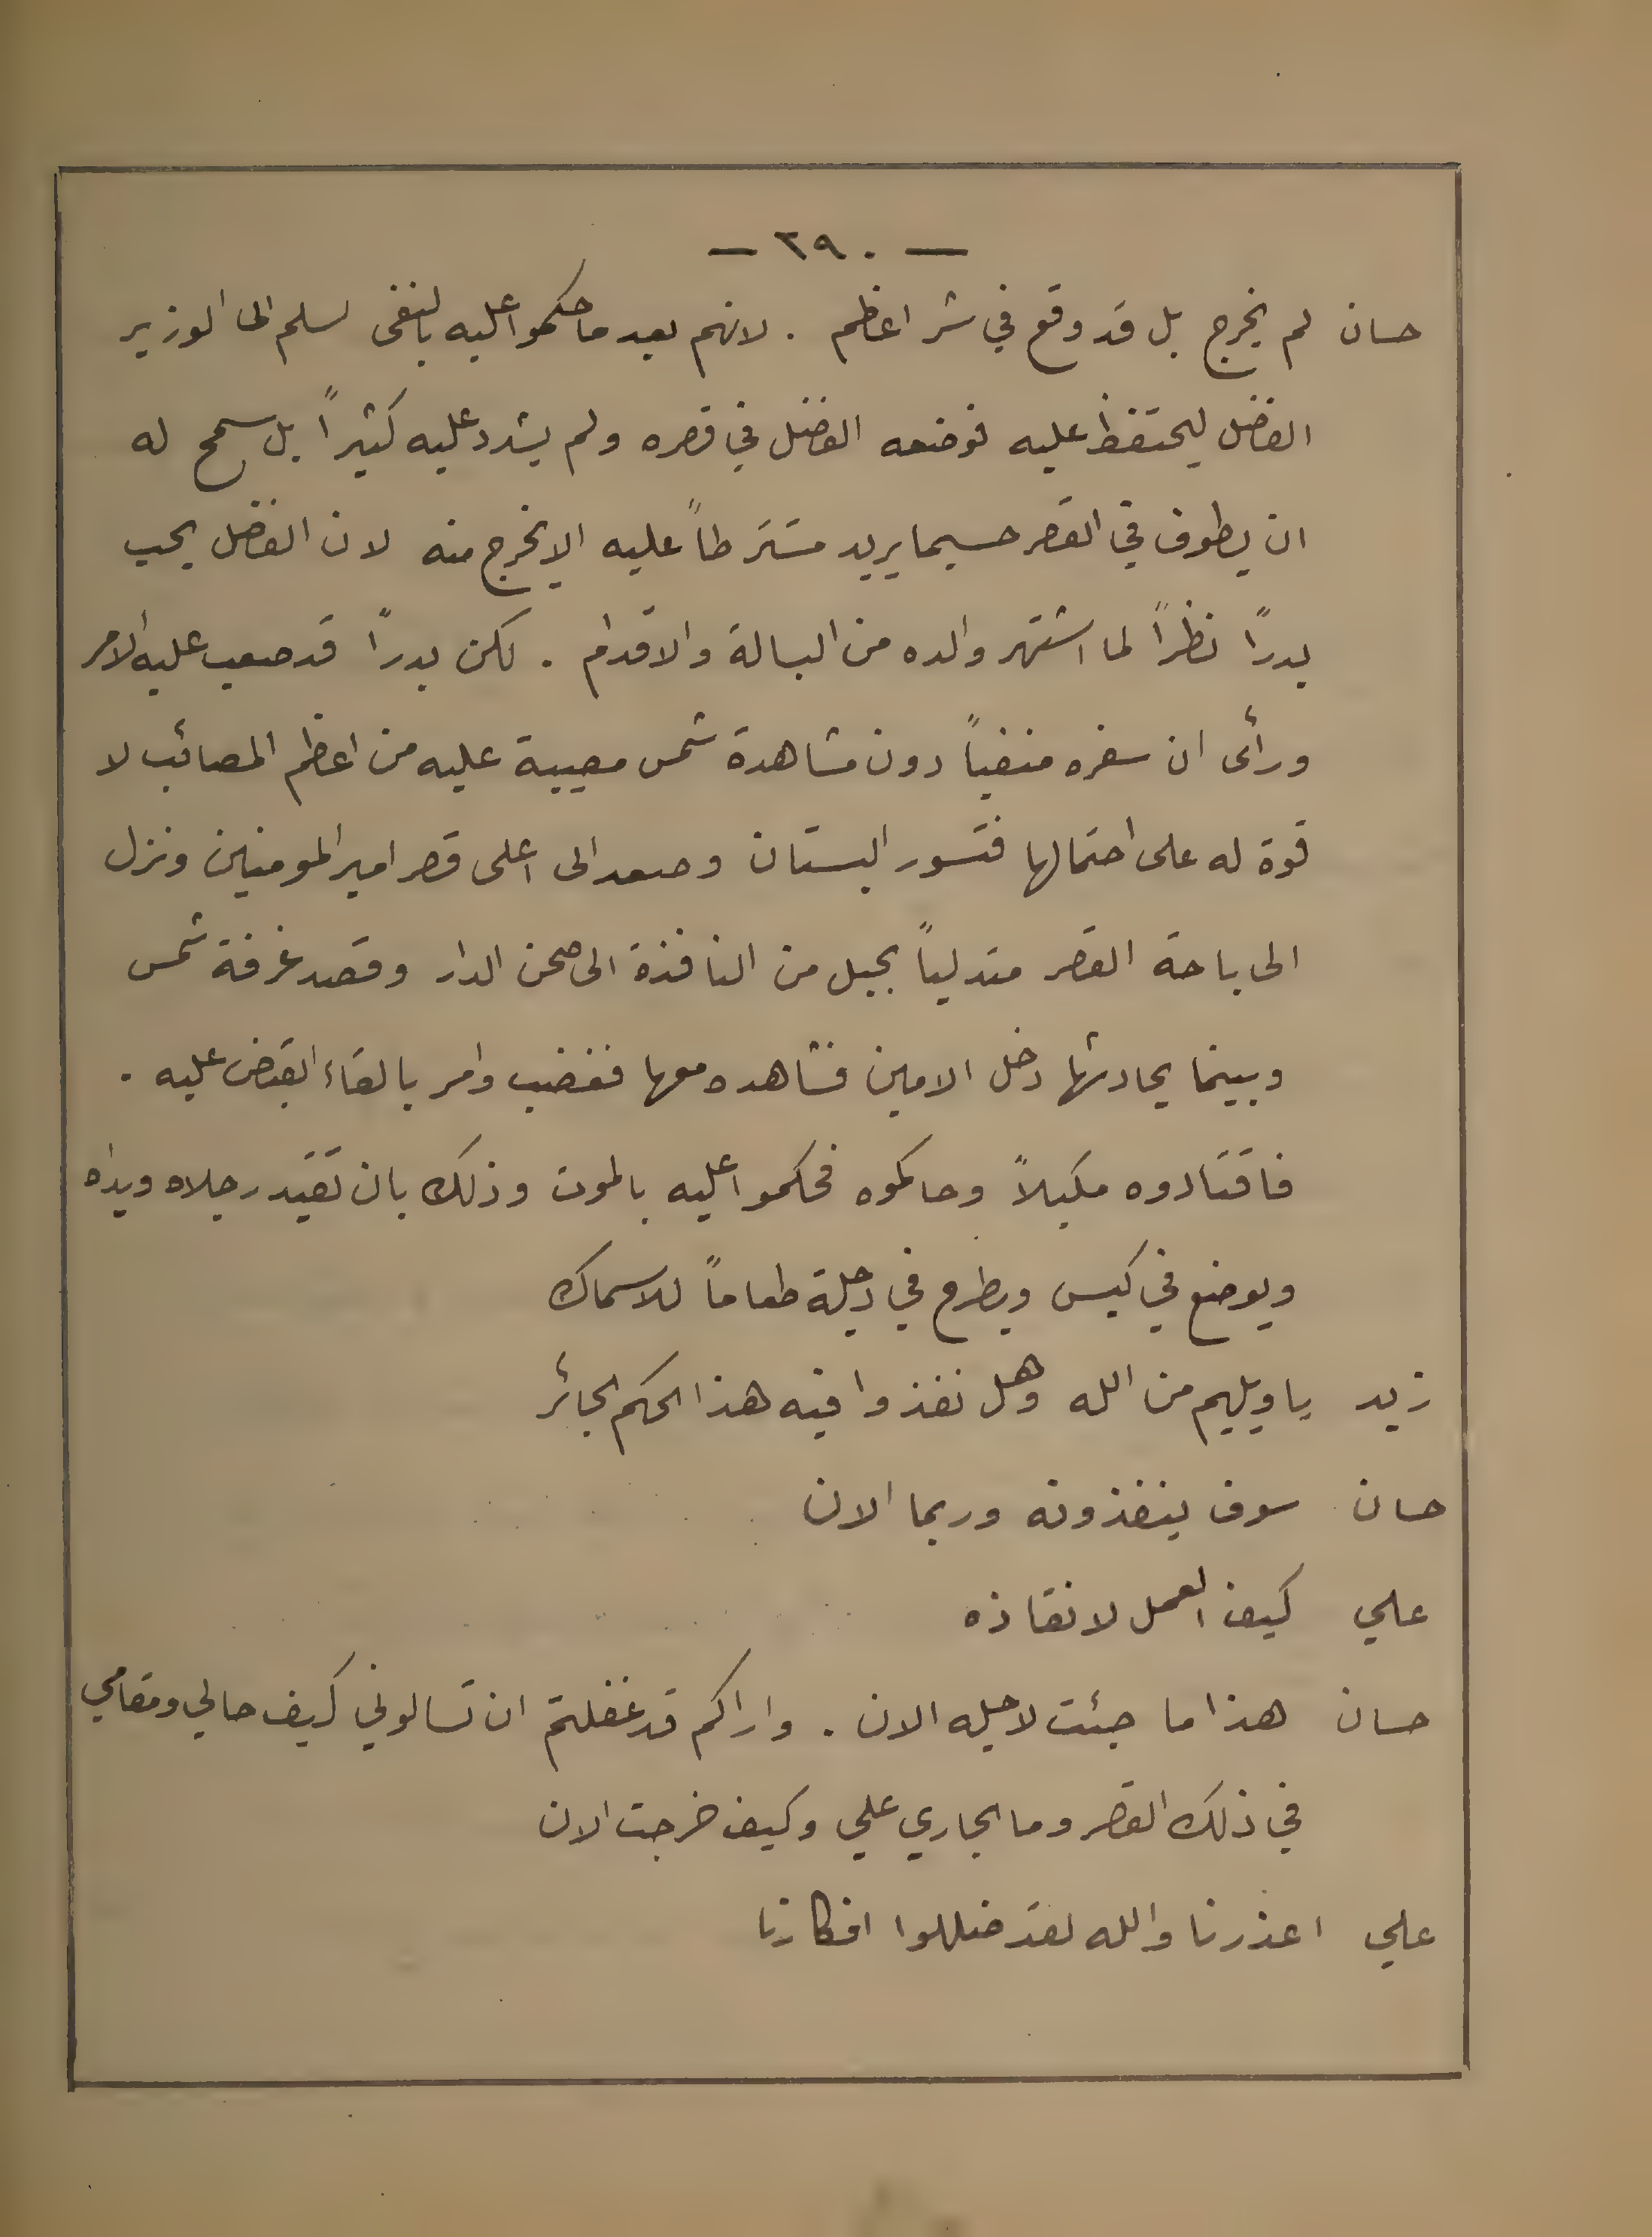 — ٢٩٠ —
حسان لم يخرج بل قد وقع في شر اعظم . لانهم بعد ما حكموا عليه بالنفى لسلم الى الوزير
الفضل ليحتفظ عليه فوضعه الفضل في قصره ولم يشدد عليه كثيراً بل سمح له
ان يطوف في القصر حسبما يريد مشترطاً عليه الا يخرج منه لان الفضل يحب
بدراً نظراً لما اشتهر والده من البسالة والاقدام . لكن بدراً قد صعب عليه الامر
ورأى ان سفره منفياً دون مشاهدة شمس مصيبة عليه من اعظم المصائب لا
قوة له على احتمالها فتسور البستان وصعد الى اعلى قصر امير المومنين ونزل
الى باحة القصر متدلياً بحبل من النافذة الى صحن الدار وقصد غرفة شمس
وبينما يحادثها دخل الامين فشاهده معها فغضب وامر بالقاء القبض عليه .
فاقتادوه مكبلاً وحاكموه فحكموا عليه بالموت وذلك بان تقيد رجلاه ويداه
ويوضع في كيس ويطرح في دجلة طعاماً للاسماك
زيد يا ويلهم من الله وهل نفذوا فيه هذا الحكم الجائر
حسان سوف ينفذونه وربما الان
علي كيف العمل لانقاذه
حسان هذا ما جئت لاجله الان . واراكم قد غفلتم ان تسالوني كيف حالي ومقامي
في ذلك القصر وما الجاري علي وكيف خرجت الان
علي اعذرنا والله لقد ضللوا افكارنا